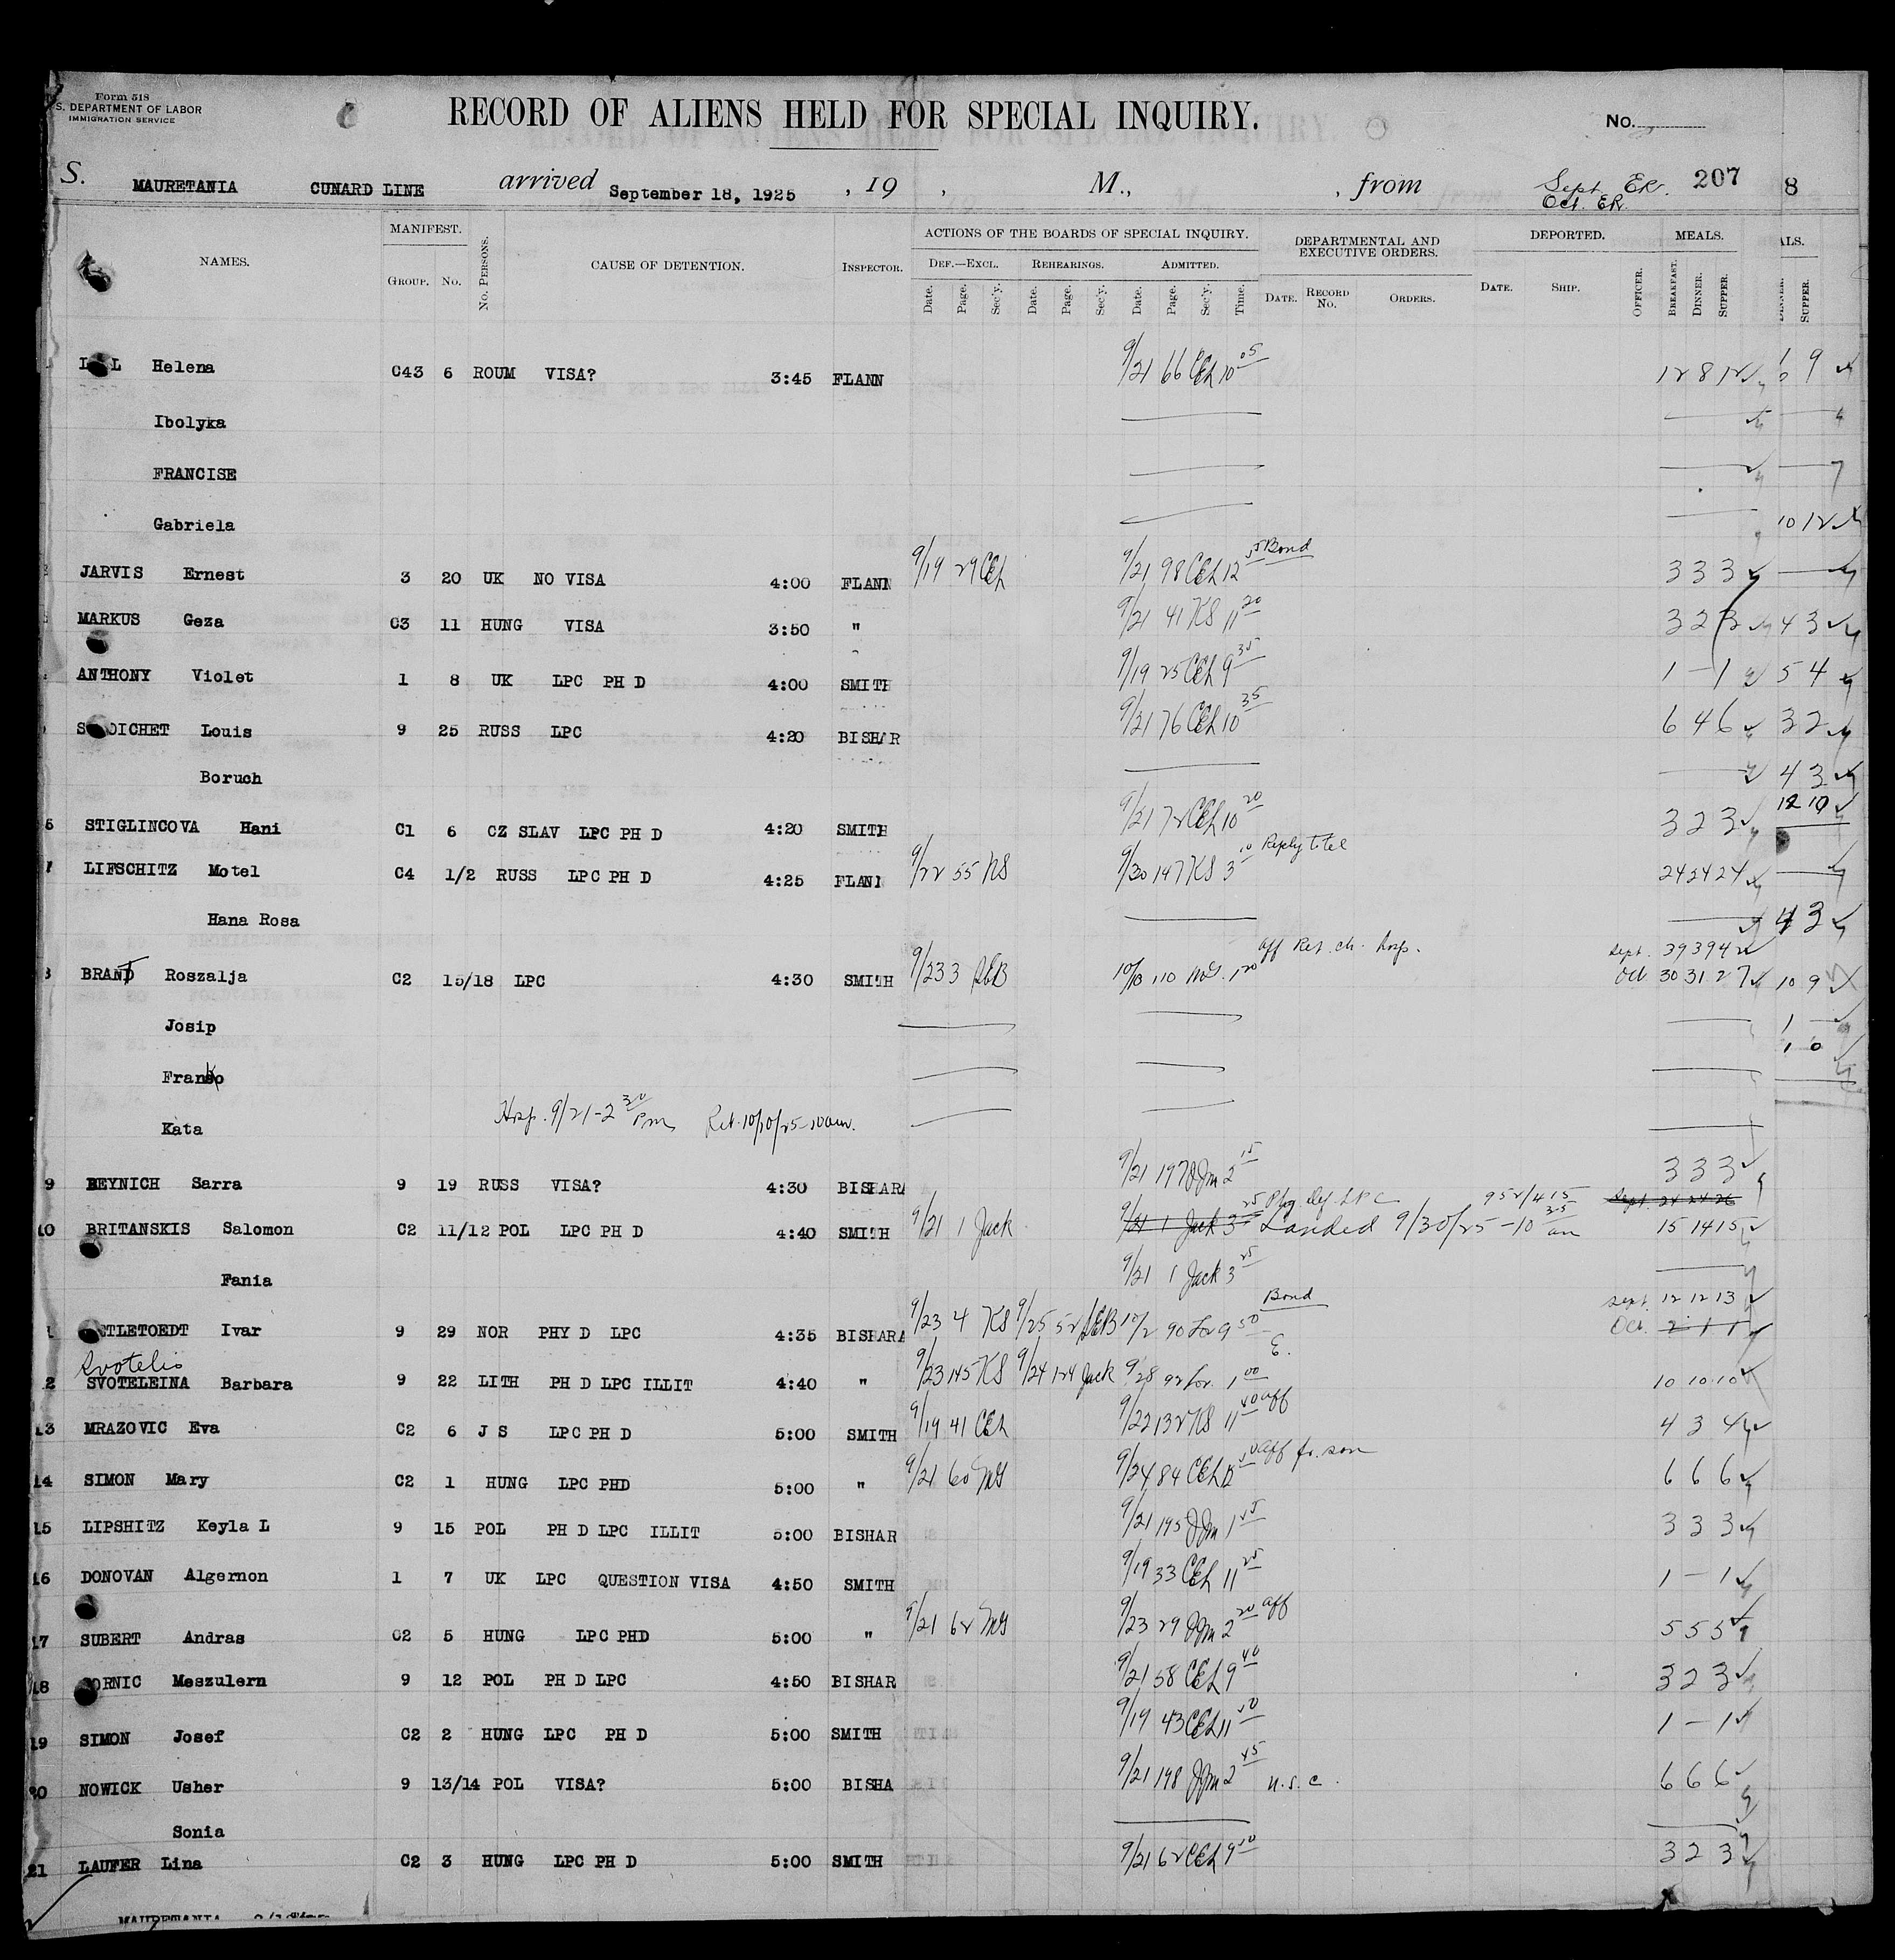 Form 518
S. DEPARTMENT OF LABOR
IMMIGRATION SERVICE
RECORD OF ALIENS HELD FOR SPECIAL INQUIRY.
No.
S. MAURETANIA CUNARD LINE arrived September 18, 1925 , 19 , M., , from Sept. ER. 207 8
Oct. ER.
NAMES. MANIFEST. GROUP. No. No. PERSONS. CAUSE OF DETENTION. INSPECTOR. ACTIONS OF THE BOARDS OF SPECIAL INQUIRY. DEPARTMENTAL AND EXECUTIVE ORDERS. DEPORTED. MEALS. ALS.
DEF.—EXCL. REHEARINGS. ADMITTED.
Date. Page. Sec'y. Date. Page. Sec'y. Date. Page. Sec'y. Time. DATE. RECORD No. ORDERS. DATE. SHIP. OFFICER. BREAKFAST. DINNER. SUPPER. DINNER. SUPPER.
Helena C43 6 ROUM VISA? 3:45 FLANN 9/21 66 CEL 10 05 12 8 12 9
Ibolyka
FRANCISE
Gabriela 10 12
JARVIS Ernest 3 20 UK NO VISA 4:00 FLANN 9/19 29 CEL 9/21 98 CEL 12 Bond 3 3 3
MARKUS Geza C3 11 HUNG VISA 3:50 " 9/21 41 KS 11 20 3 2 3 4 3
ANTHONY Violet 1 8 UK LPC PH D 4:00 SMITH 9/19 25 CEL 9 35 1 - 1 5 4
Louis 9 25 RUSS LPC 4:20 BISHAR 9/21 76 CEL 10 35 6 4 6 3 2
Boruch 4 3
6 STIGLINCOVA Hani C1 6 CZ SLAV LPC PH D 4:20 SMITH 9/21 72 CEL 10 20 3 2 3 12 10
LIFSCHITZ Motel C4 1/2 RUSS LPC PH D 4:25 FLANN 9/22 55 KS 9/30 147 KS 3 10 Reply to tel 24 24 24
Hana Rosa 4 3
BRANT Roszalja C2 15/18 LPC 4:30 SMITH 9/23 3 10/10 110 aff Ret. ch. hosp. Sept. 39 39 42
Oct. 30 31 27 10 9
Josip 1
Franko 1 0
Kata Hosp. 9/21 - 2 30 Pm Ret. 10/10/25 - 10 am.
9 BEYNICH Sarra 9 19 RUSS VISA? 4:30 BISHARA 9/21 197 JJm 2 15 3 3 3
10 BRITANSKIS Salomon C2 11/12 POL LPC PH D 4:40 SMITH 9/21 1 Jack 9/21 1 Jack 3 25 Landed 9/30/25 - 10 35 am 15 14 15
Fania 9/21 1 Jack 3 25
Ivar 9 29 NOR PHY D LPC 4:35 BISHARA 9/23 4 KS 9/25 52 10/2 90 9 50 Bond Sept. 12 12 13
Oct. 2 1 1
Svotelis
SVOTELEINA Barbara 9 22 LITH PH D LPC ILLIT 4:40 " 9/23 145 KS 9/24 124 Jack 9/28 92 1 00 10 10 10
13 MRAZOVIC Eva C2 6 J S LPC PH D 5:00 SMITH 9/19 41 CEL 9/22 132 KS 11 40 aff 4 3 4
14 SIMON Mary C2 1 HUNG LPC PHD 5:00 " 9/21 60 MG 9/24 84 CEL aff fr. son 6 6 6
15 LIPSHITZ Keyla L 9 15 POL PH D LPC ILLIT 5:00 BISHAR 9/21 195 JJm 1 3 3 3
16 DONOVAN Algernon 1 7 UK LPC QUESTION VISA 4:50 SMITH 9/19 33 CEL 11 25 1 - 1
17 SUBERT Andras C2 5 HUNG LPC PHD 5:00 " 9/21 62 MG 9/23 29 JJm 2 20 aff 5 5 5
18 Meszulern 9 12 POL PH D LPC 4:50 BISHAR 9/21 58 CEL 9 40 3 2 3
19 SIMON Josef C2 2 HUNG LPC PH D 5:00 SMITH 9/19 43 CEL 11 1 - 1
20 NOWICK Usher 9 13/14 POL VISA? 5:00 BISHA 9/21 198 JJm 2 45 U.S.C. 6 6 6
Sonia
21 LAUFER Lina C2 3 HUNG LPC PH D 5:00 SMITH 9/21 62 CEL 9 3 2 3
MAURETANIA